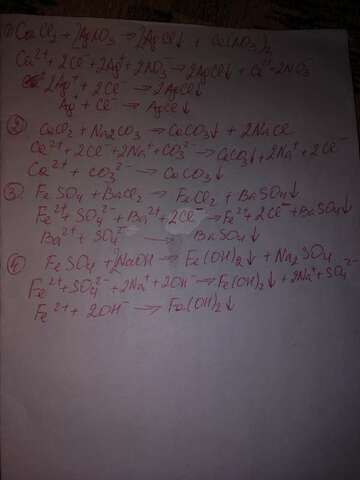 1) CaCl₂ + 2AgNO₃ → 2AgCl↓ + Ca(NO₃)₂
Ca²⁺ + 2Cl⁻ + 2Ag⁺ + 2NO₃⁻ → 2AgCl↓ + Ca²⁺ 2NO₃⁻
2Ag⁺ + 2Cl⁻ → 2AgCl↓
Ag⁺ + Cl⁻ → AgCl↓
2) CaCl₂ + Na₂CO₃ → CaCO₃↓ + 2NaCl
Ca²⁺ + 2Cl⁻ + 2Na⁺ + CO₃²⁻ → CaCO₃↓ + 2Na⁺ + 2Cl⁻
Ca²⁺ + CO₃²⁻ → CaCO₃↓
3) FeSO₄ + BaCl₂ → FeCl₂ + BaSO₄↓
Fe²⁺ + SO₄²⁻ + Ba²⁺ + 2Cl⁻ → Fe²⁺ + 2Cl⁻ + BaSO₄↓
Ba²⁺ + SO₄²⁻ → BaSO₄↓
4) FeSO₄ + 2NaOH → Fe(OH)₂↓ + Na₂SO₄
Fe²⁺ + SO₄²⁻ + 2Na⁺ + 2OH⁻ → Fe(OH)₂↓ + 2Na⁺ + SO₄²⁻
Fe²⁺ + 2OH⁻ → Fe(OH)₂↓